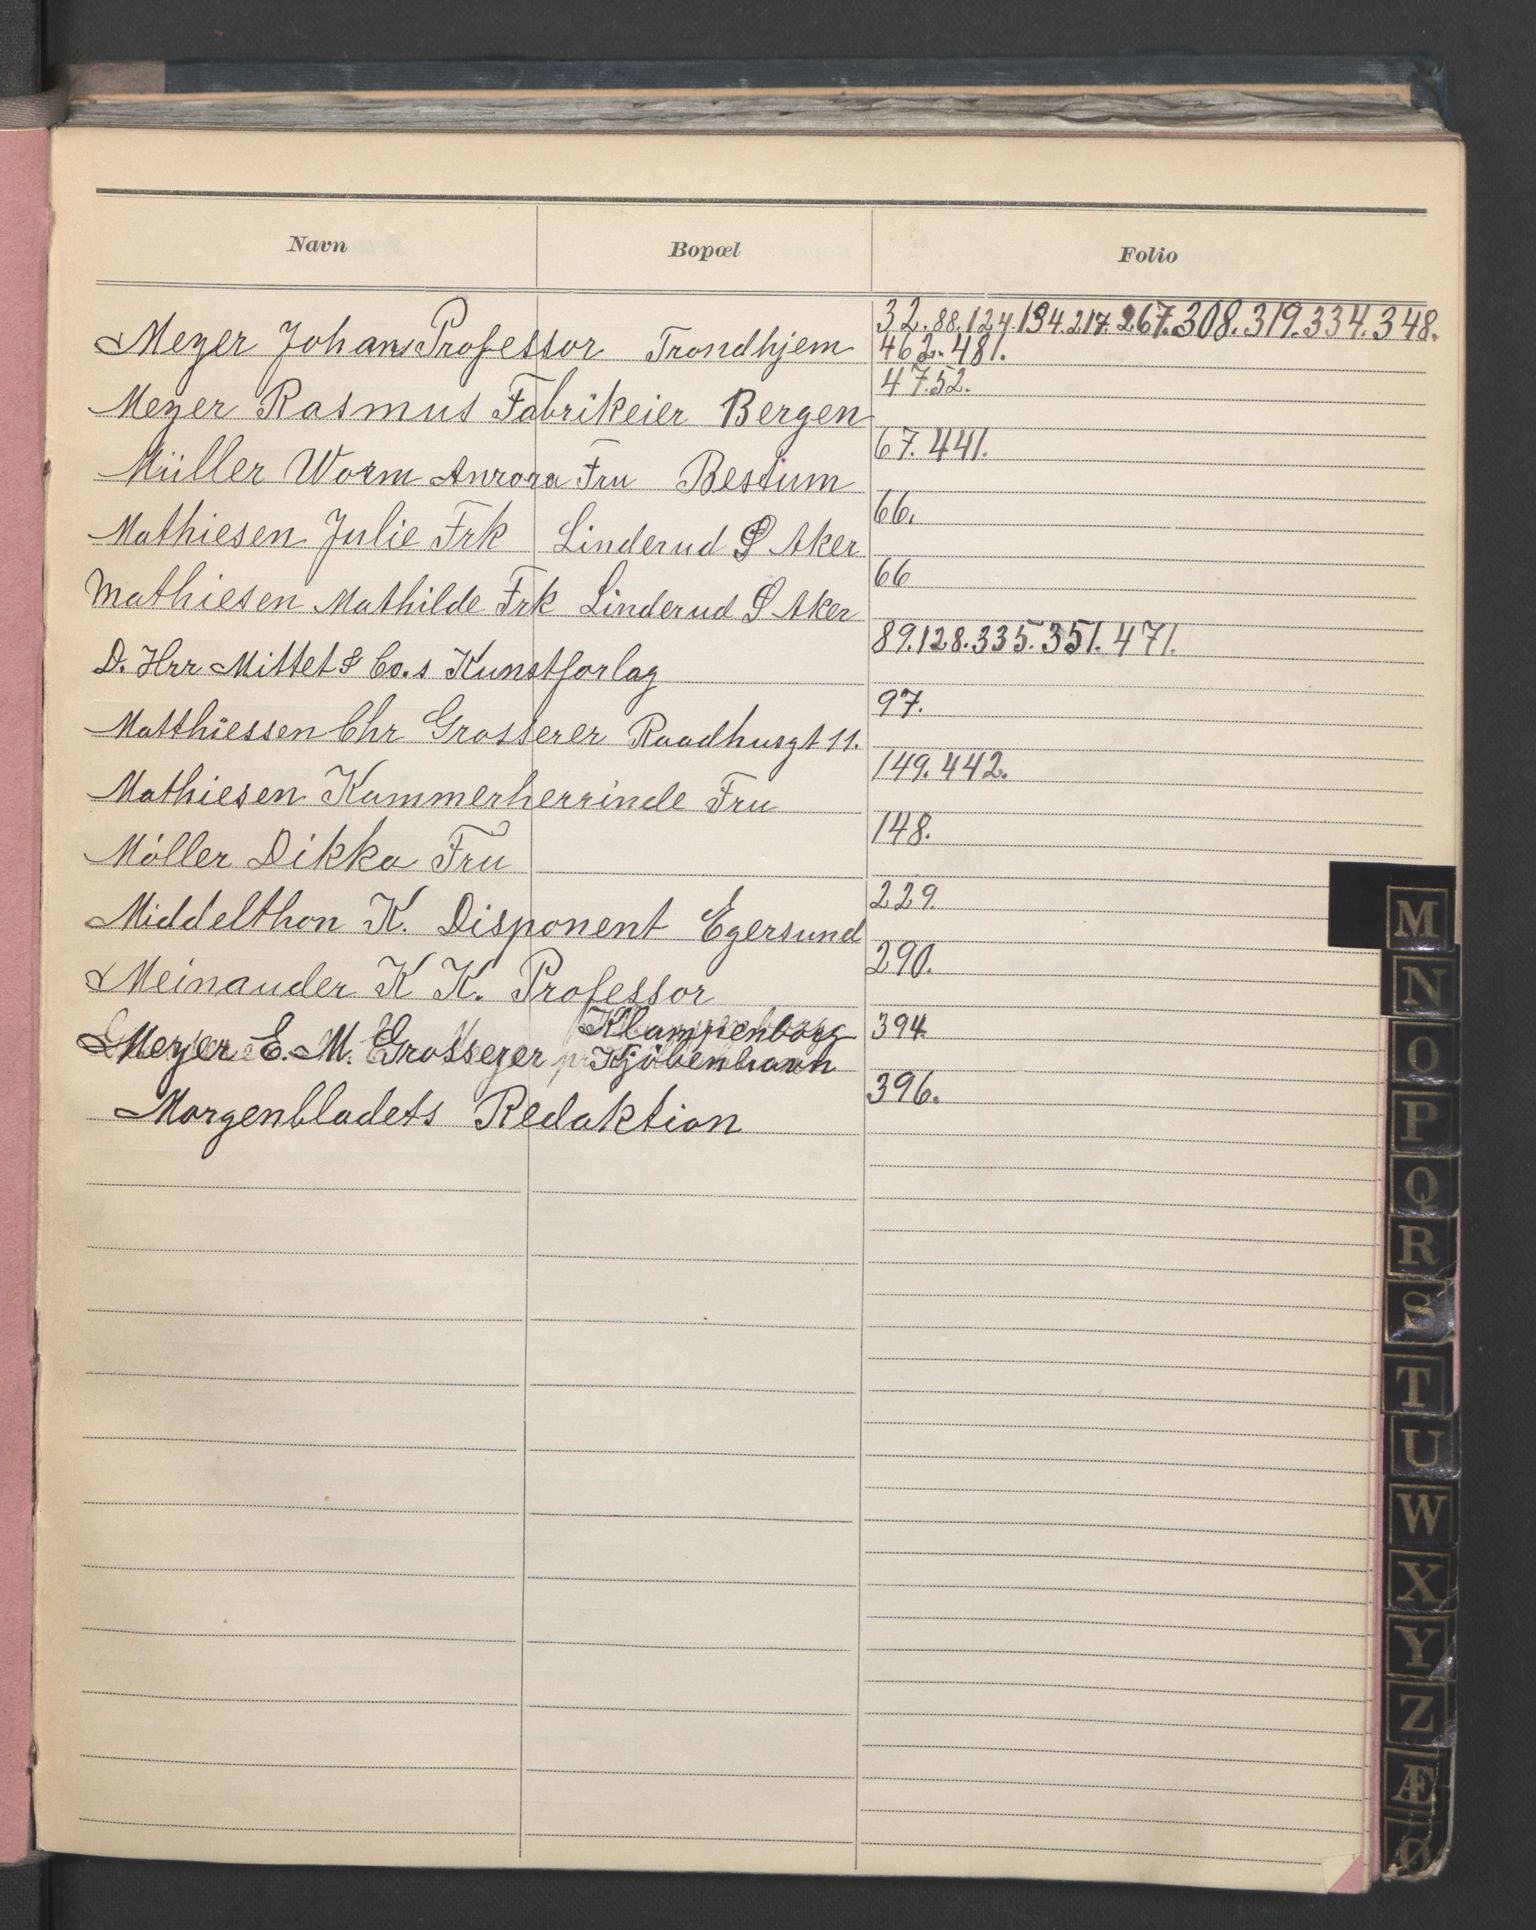 Navn Bopæl Folio
32. 88. 124. 194. 217. 267. 308. 319. 334. 348.
Meyer Johans Professor Trondhjem 462. 481.
47. 52.
Meyer Rasmus Fabrikeier Bergen
67. 441.
Müller Worm Aurora Fru Bestum
66.
Mathiesen Julie Frk Linderud P Aker
66
Mathiesen Mathilde Frk Linderud P Aker
89. 128. 335. 351. 471.
D. Hrr Mittet & Co.s Kunstforlag
97.
Matthiessen Chr Grosserer Raadhusgt 11.
149. 442.
Mathiesen Kammerherrinde Fru
148.
Möller Dikka Fru
229.
Middelthon K. Disponent Egersund
290.
Meinander K K. Professor
Klampenborg 394.
Meyer E. M. Grosserer Kjöbenhavn
396.
Morgenbladets Redaktion
M
N
O
P
Q
R
S
T
U
W
X
Y
Z
Æ
Ø